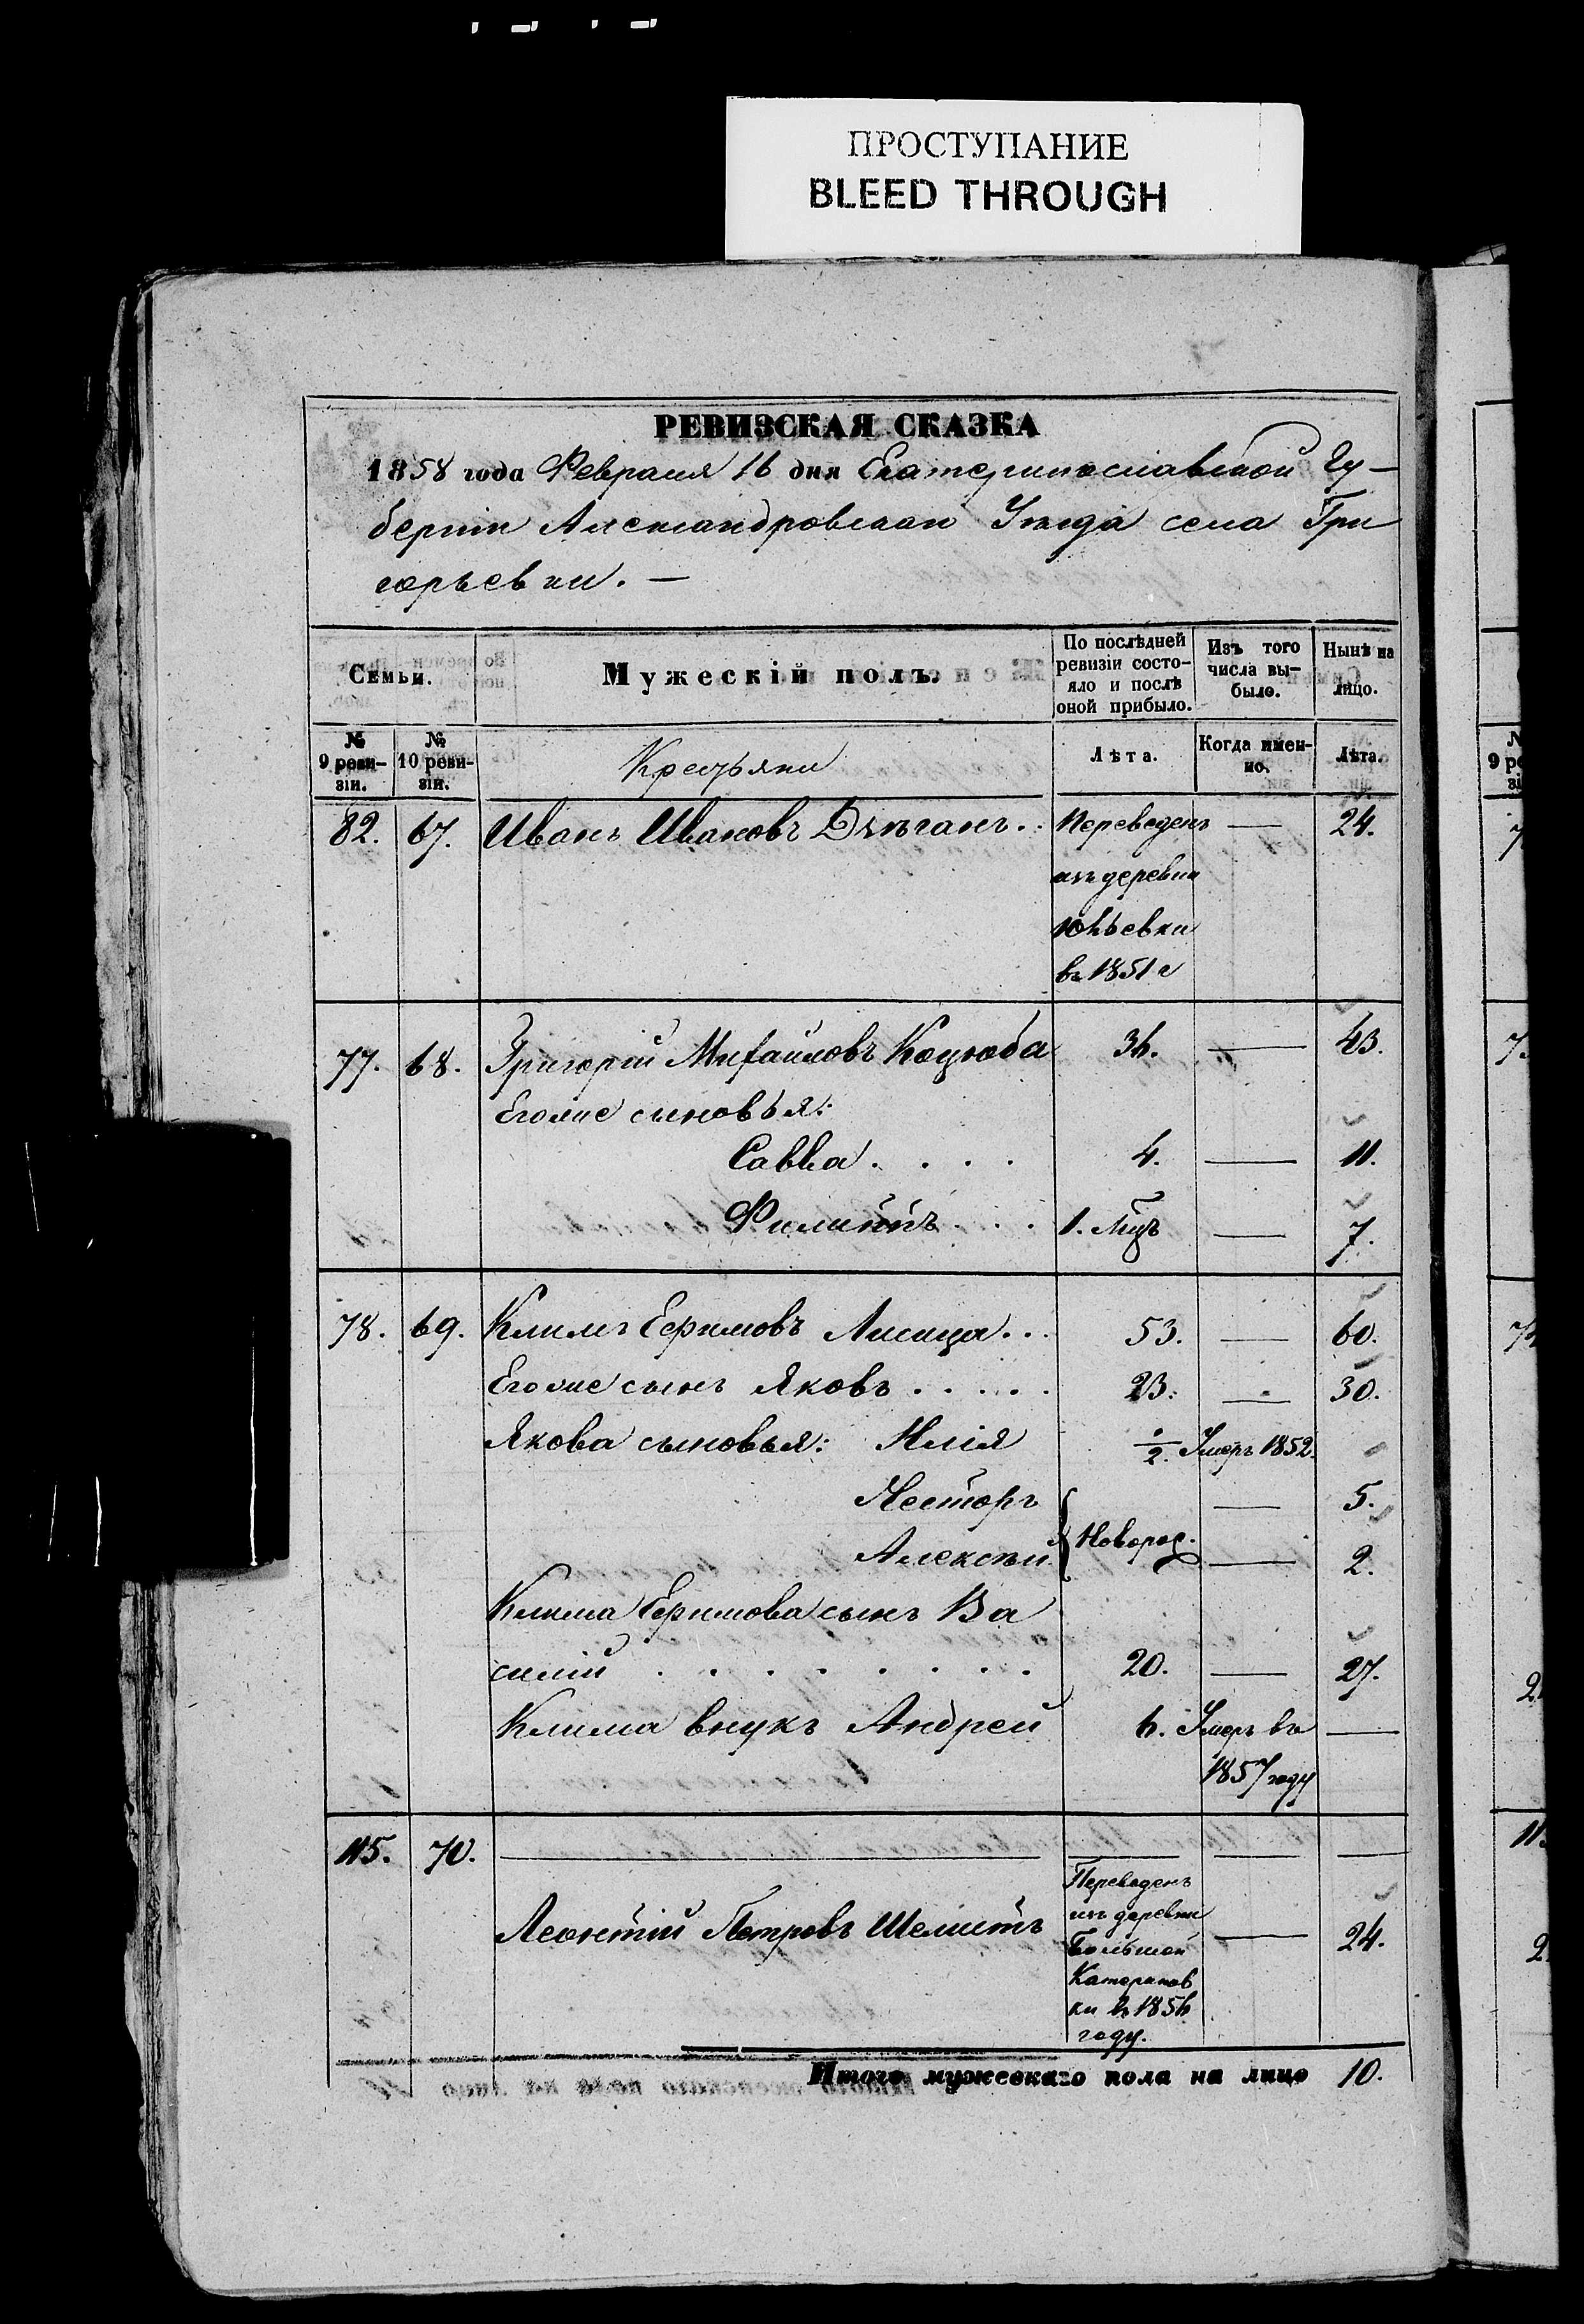 ПРОСТУПАНИЕ
BLEED THROUGH
РЕВИЗСКАЯ СКАЗКА
1858 года Февраля 16 дня Екатеринославской Гу-
берніи Александровскаго Уѣзда села Гри
горьевки. —
Семьи. Мужескій полъ. По послѣдней ревизіи состо-яло и послѣ оной прибыло. Изъ того числа вы-было. Нынѣ на лицо.
№ 9 реви-зіи. № 10 реви-зіи. Крестьяни Лѣта. Когда имен-но. Лѣта.
82. 67. Иванъ Ивановъ Переведенъ — 24.
изъ деревни
въ 1851 г
77. 68. Григорій Михайловъ Коцюба 36. — 43.
Егоже сыновья:
Савва . . . . 4. — 11.
Филиппъ . . . 1. мцъ — 7.
78. 69. Климъ Ефимовъ Лисица . . . 53. — 60.
Егоже сынъ Яковъ . . . . . 23. — 30.
Якова сыновья: Илія 1/2. Умеръ 1852.
Несторъ — 5.
Алексѣй Новорож. — 2.
Клима Ефимова сынъ Ва
силій . . . . . . . . 20. — 27.
Клима внукъ Андрей 6. Умеръ въ —
1857 году
115. 70. — — — —
Переведенъ
изъ деревни
Леонтій Петровъ Шелистъ — 24.
Большой
Катеринов
ки въ 1856
году.
Итого мужескаго пола на лицо 10.